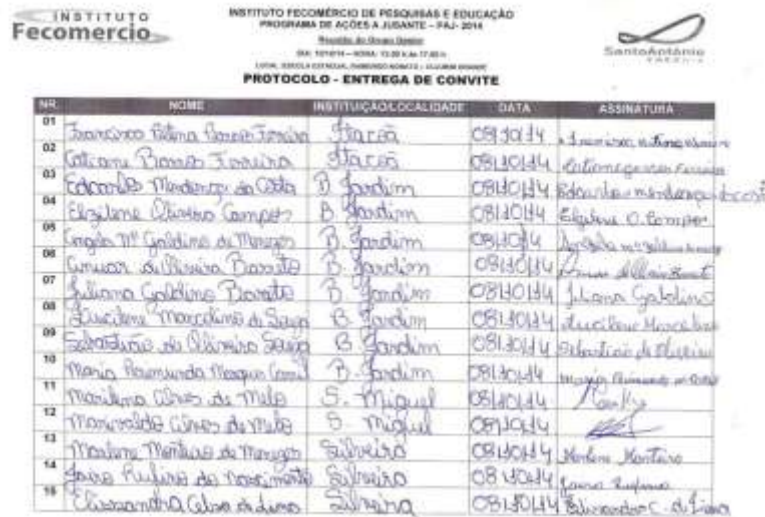 INSTITUTO
Fecomercio
INSTITUTO FECOMÉRCIO DE PESQUISAS E EDUCAÇÃO
PROGRAMA DE AÇÕES A JUSANTE – PAJ- 2014
Reunião do Grupo Gestor
Santo Antônio
ENERGIA
PROTOCOLO - ENTREGA DE CONVITE
NR. NOME INSTITUIÇÃO/LOCALIDADE DATA ASSINATURA
01 Francisco Barros Ferreira Itacoã 08/10/14
02 Catiane Barros Ferreira Itacoã 08/10/14
03 Edcarlos Mendonça da Costa B. Jardim 08/10/14 Edcarlos mendonça da costa
04 Elzilene Oliveira Campos B. Jardim 08/10/14 Elzilene O. Campos
05 Angela Mª Galdino de Menezes B. Jardim 08/10/14 Angela
06 de Oliveira Barreto B. Jardim 08/10/14
07 Juliana Galdino Barreto B. Jardim 08/10/14 Juliana Galdino
08 Lucilene Marcolino de Souza B. Jardim 08/10/14 Lucilene
09 Sebastião de Oliveira Souza B. Jardim 08/10/14 Sebastião de Oliveira
10 Maria Raimunda Marques B. Jardim 08/10/14 Maria Raimunda
11 Marilena Alves de Melo S. Miguel 08/10/14
12 Marivaldo Alves de Melo S. Miguel 08/10/14
13 Marlene Monteiro de Menezes Silveira 08/10/14 Marlene Monteiro
14 Jairo Rufino do Nascimento Silveira 08/10/14 Jairo Rufino
15 Elissandra Celso de Lima Silveira 08/10/14 Elissandra C. de Lima